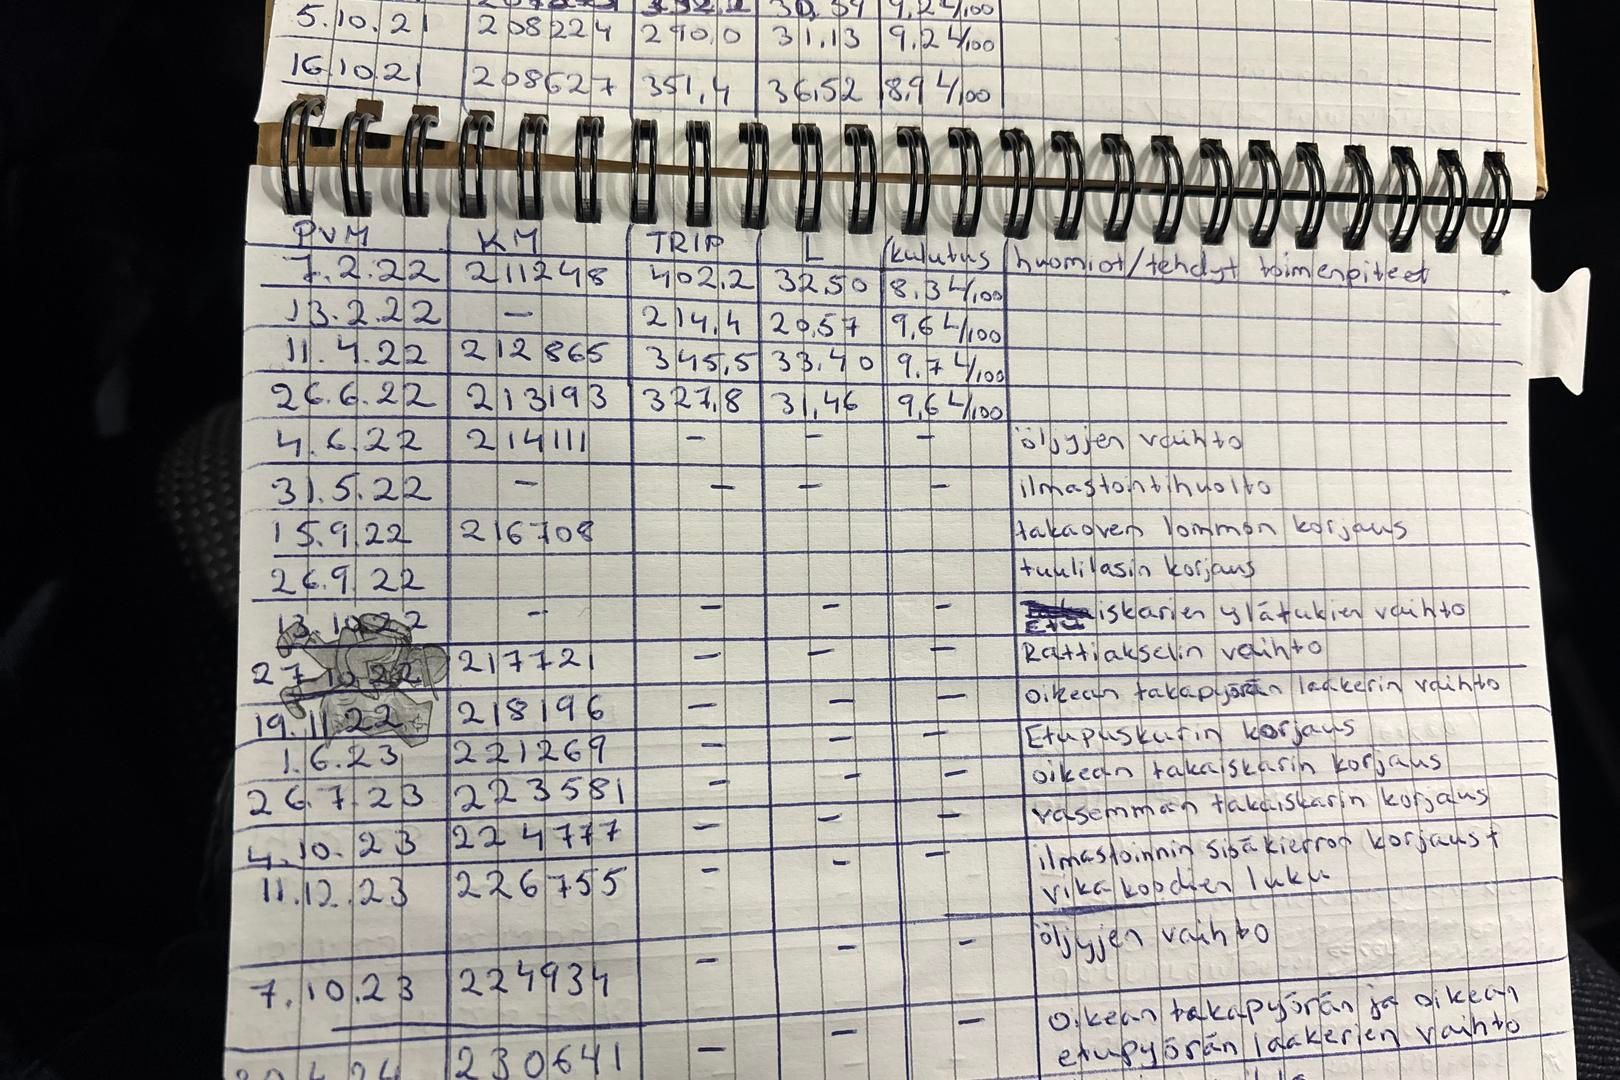 5.10.21 208224 290,0 31,13 9,2 L/100
16.10.21 208627 351,4 36,52 8,9 L/100
PVM KM TRIP L kulutus huomiot/tehdyt toimenpiteet
7.2.22 211248 402,2 32,50 8,3 L/100
13.2.22 – 214,4 20,57 9,6 L/100
11.4.22 212865 345,5 33,40 9,7 L/100
26.6.22 213193 327,8 31,46 9,6 L/100
4.6.22 214111 – – – öljyjen vaihto
31.5.22 – – – – ilmastointihuolto
15.9.22 216708 takaoven lommon korjaus
26.9.22 tuulilasin korjaus
13.10.22 – – – – Etu iskarien ylätukien vaihto
27.10.22 217721 – – – Rattiakselin vaihto
19.11.22 218196 – – – oikean takapyörän laakerin vaihto
1.6.23 221269 – – – Etupuskurin korjaus
26.7.23 223581 – – – oikean takaiskarin korjaus
4.10.23 224777 – – – vasemman takaiskarin korjaus
11.12.23 226755 – – – ilmastoinnin sisäkierron korjaus +
vikakoodien luku
7.10.23 224934 – – – öljyjen vaihto
230641 – – – oikean takapyörän ja oikean
etupyörän laakerien vaihto